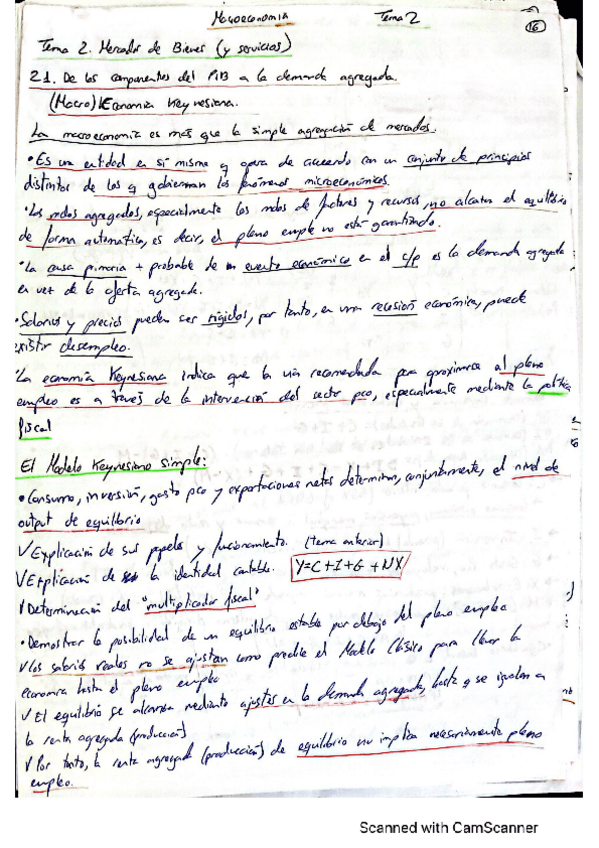 Macroeconomía Tema 2
16
Tema 2. Mercado de Bienes (y servicios)
2.1. De los componentes del PIB a la demanda agregada.
(Macro) Economía Keynesiana.
La macroeconomía es más que la simple agregación de mercados.
•Es una entidad en sí misma q opera de acuerdo con un conjunto de principios
distintos de los q gobiernan los fenómenos microeconómicos.
•Los mdos agregados, especialmente los mdos de factores y recursos, no alcanzan el equilibrio
de forma automática, es decir, el pleno empleo no está garantizado.
•La causa primaria + probable de un evento económico en el c/p es la demanda agregada
en vez de la oferta agregada.
•Salarios y precios pueden ser rígidos, por tanto, en una recesión económica, puede
existir desempleo.
•La economía Keynesiana indica que la vía recomendada para aproximarse al pleno
empleo es a través de la intervención del sector pco, especialmente mediante la política
fiscal
El Modelo Keynesiano simple:
•Consumo, inversión, gasto pco y exportaciones netas determinan, conjuntamente, el nivel de
output de equilibrio
✓Explicación de sus papeles y funcionamiento. (tema anterior)
✓Explicación de la identidad contable. Y=C+I+G+NX
✓Determinación del "multiplicador fiscal"
•Demostrar la posibilidad de un equilibrio estable por debajo del pleno empleo
✓Los salarios reales no se ajustan como predice el Modelo Clásico para llevar la
economía hasta el pleno empleo
✓El equilibrio se alcanza mediante ajustes en la demanda agregada, hasta q se igualan a
la renta agregada (producción)
✓Por tanto, la renta agregada (producción) de equilibrio no implica necesariamente pleno
empleo.
Scanned with CamScanner